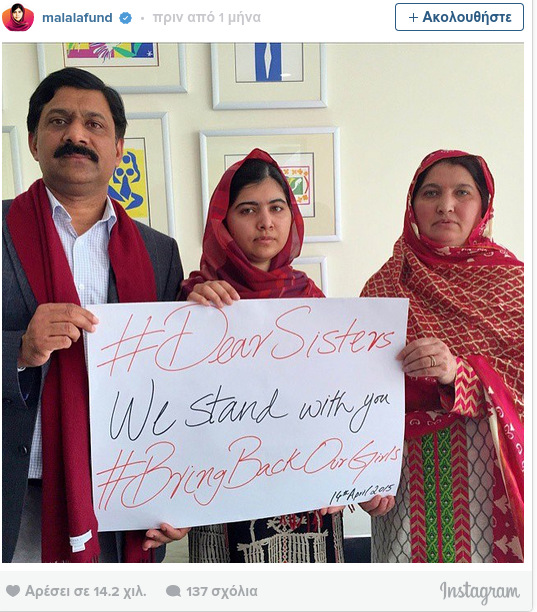 malalafund • πριν από 1 μήνα
+ Ακολουθήστε
#DearSisters
We stand with you
#BringBackOurGirls
14th April 2015
Αρέσει σε 14.2 χιλ. 137 σχόλια Instagram